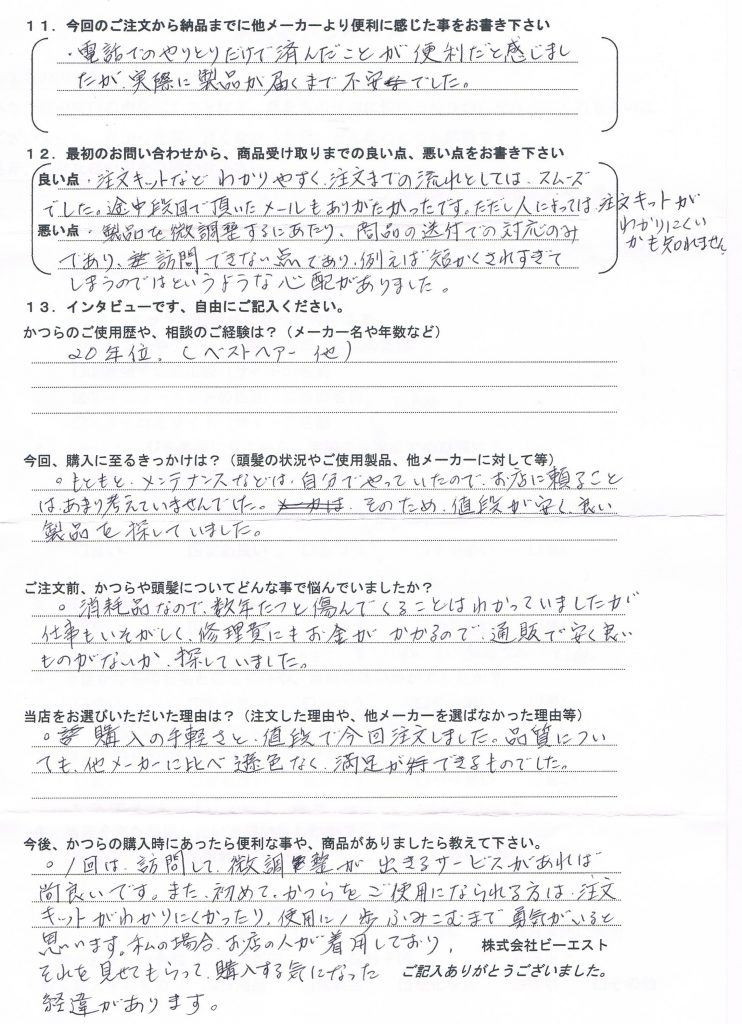 １１．今回のご注文から納品までに他メーカーより便利に感じた事をお書き下さい
・電話でのやりとりだけで済んだことが便利だと感じまし
たが、実際に製品が届くまで不安でした。
１２．最初のお問い合わせから、商品受け取りまでの良い点、悪い点をお書き下さい
良い点・注文キットなどわかりやすく、注文までの流れとしては、スムーズ
でした。途中段回で頂いたメールもありがたかったです。ただし人によっては、注文キットが
わかりにくい
かも知れません
悪い点・製品を微調整するにあたり、商品の送付での対応のみ
であり、訪問できない点であり、例えば短かくされすぎて
しまうのではというような心配がありました。
１３．インタビューです、自由にご記入ください。
かつらのご使用歴や、相談のご経験は？（メーカー名や年数など）
20年位、（ベストヘアー 他）
今回、購入に至るきっかけは？（頭髪の状況やご使用製品、他メーカーに対して等）
○もともと、メンテナンスなどは、自分でやっていたので、お店に頼ること
は、あまり考えていませんでした。そのため、値段が安く、良い
製品を探していました。
ご注文前、かつらや頭髪についてどんな事で悩んでいましたか？
○消耗品なので、数年たつと傷んでくることはわかっていましたが
仕事もいそがしく、修理費にもお金がかかるので、通販で安く良い
ものがないか、探していました。
当店をお選びいただいた理由は？（注文した理由や、他メーカーを選ばなかった理由等）
○購入の手軽さと、値段で今回注文しました。品質につい
ても、他メーカーに比べ遜色なく、満足ができるものでした。
今後、かつらの購入時にあったら便利な事や、商品がありましたら教えて下さい。
○1回は、訪問して、微調整が出きるサービスがあれば
尚良いです。また、初めて、かつらをご使用になられる方は、注文
キットがわかりにくかったり、使用に1歩ふみこむまで勇気がいると
思います。私の場合、お店の人が着用しており、
株式会社ビーエスト
それを見せてもらって、購入する気になった
ご記入ありがとうございました。
経違があります。